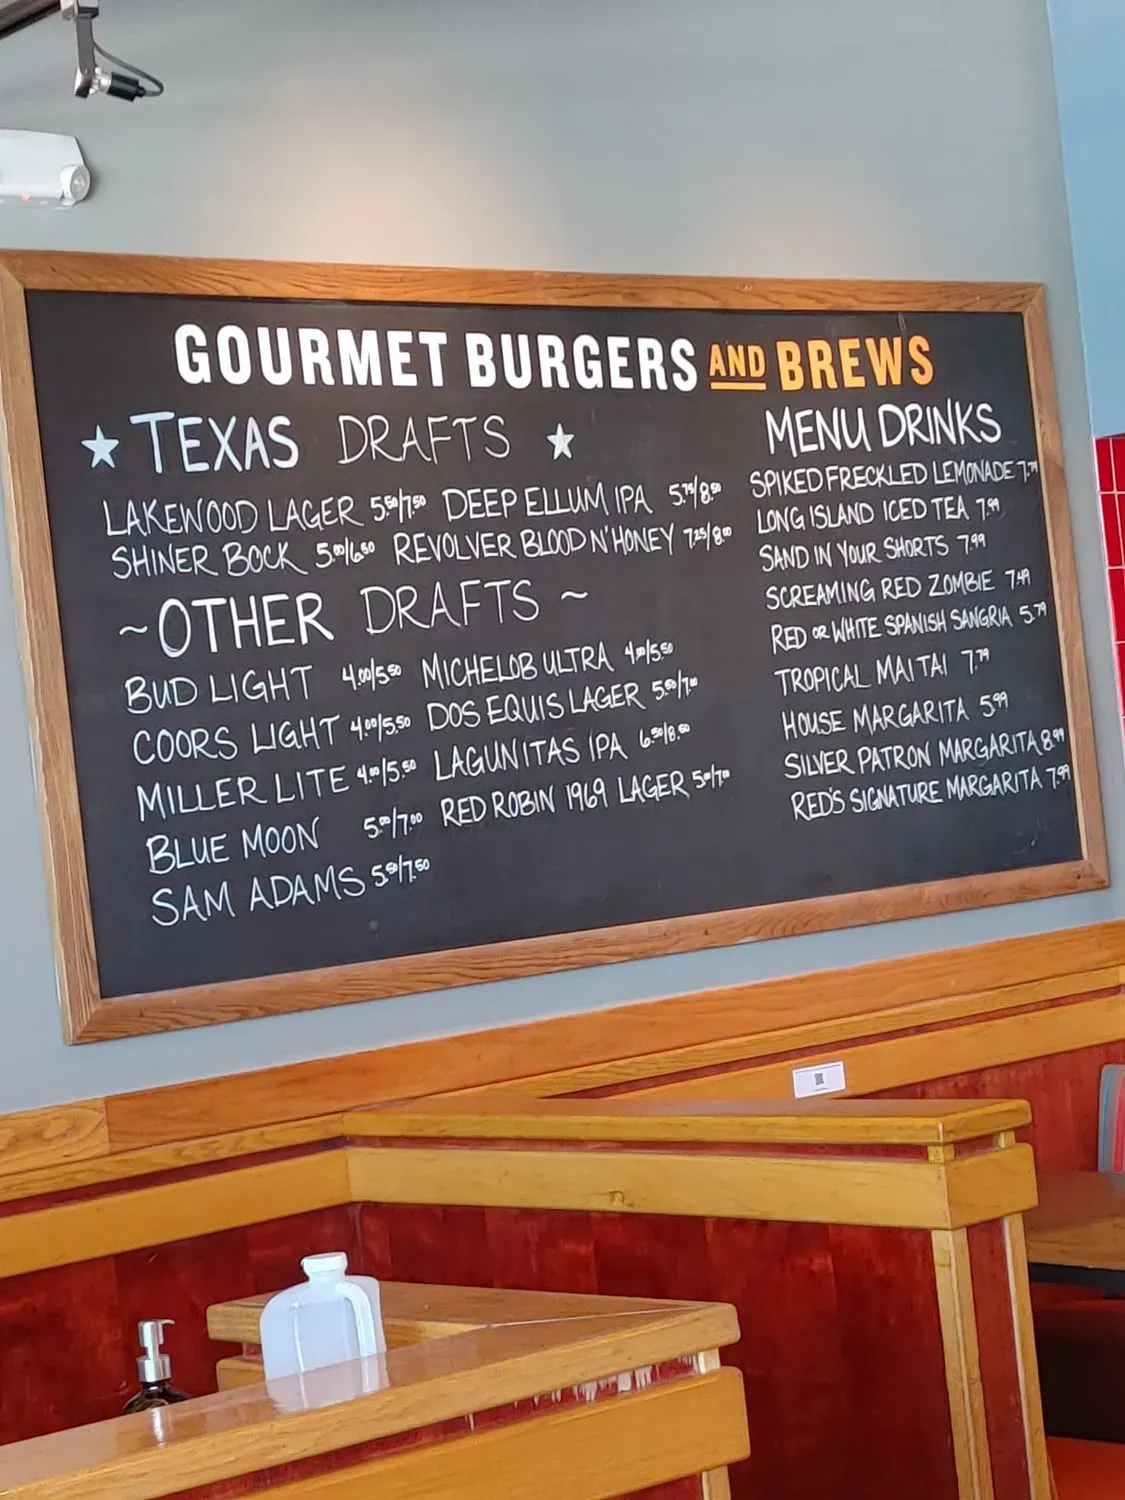 GOURMET BURGERS AND BREWS
TEXAS DRAFTS
LAKEWOOD LAGER 5.50/7.50 DEEP ELLUM IPA 5.75/8.50
SHINER BOCK 5.00/6.50 REVOLVER BLOOD N' HONEY 7.25/8.00
~OTHER DRAFTS~
BUD LIGHT 4.00/5.50 MICHELOB ULTRA 4.00/5.50
COORS LIGHT 4.00/5.50 DOS EQUIS LAGER 5.50/7.00
MILLER LITE 4.00/5.50 LAGUNITAS IPA 6.50/8.50
BLUE MOON 5.00/7.00 RED ROBIN 1969 LAGER 5.00/7.00
SAM ADAMS 5.50/7.50
MENU DRINKS
SPIKED FRECKLED LEMONADE 7.79
LONG ISLAND ICED TEA 7.99
SAND IN YOUR SHORTS 7.99
SCREAMING RED ZOMBIE 7.49
RED OR WHITE SPANISH SANGRIA 5.79
TROPICAL MAI TAI 7.79
HOUSE MARGARITA 5.99
SILVER PATRON MARGARITA 8.99
RED'S SIGNATURE MARGARITA 7.99